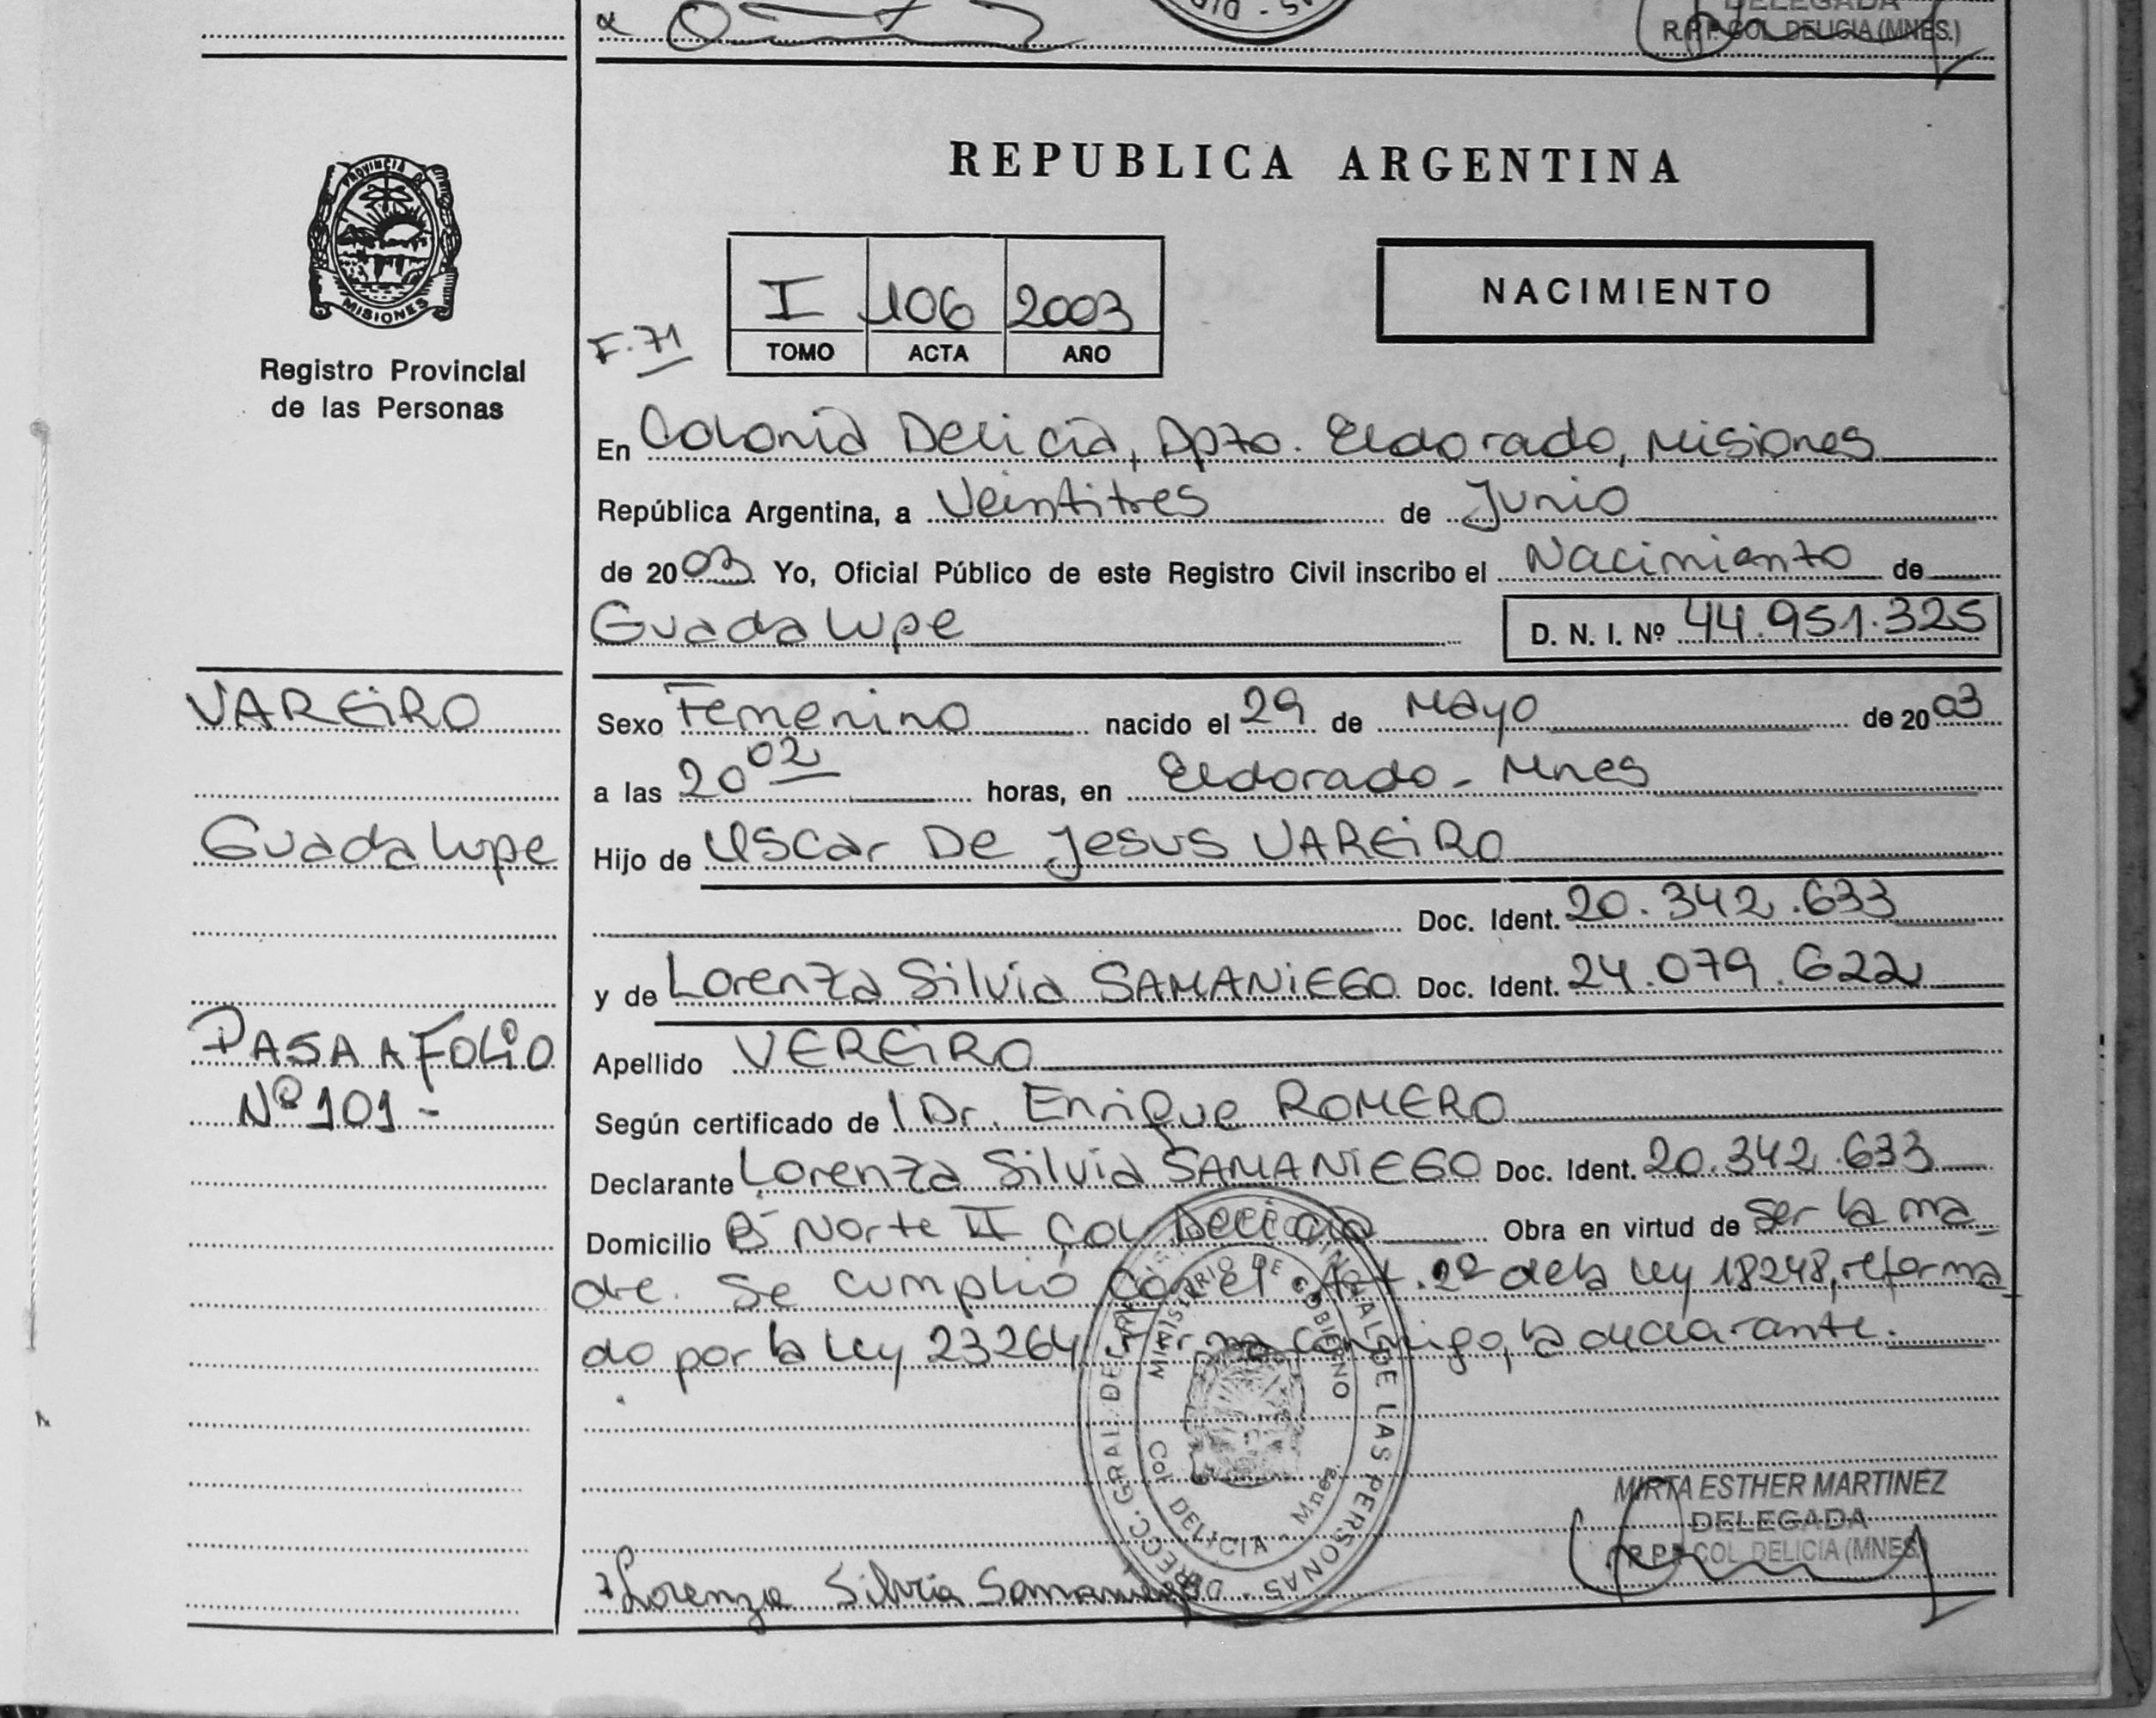 DELEGADA
R.P.P. COL. DELICIA (MNES.)
PROVINCIA DE
MISIONES
Registro Provincial
de las Personas
REPUBLICA ARGENTINA
I 106 2003
TOMO ACTA AÑO
F. 71
NACIMIENTO
En Colonia Delicia, Dpto. Eldorado, Misiones
República Argentina, a Veintitres de Junio
de 2003 Yo, Oficial Público de este Registro Civil inscribo el Nacimiento de
Guadalupe D. N. I. Nº 44.951.325
VAREIRO
Guadalupe
PASA A FOLIO
Nº 101 -
Sexo Femenino nacido el 29 de Mayo de 2003
a las 20 02 horas, en Eldorado - Mnes
Hijo de Oscar De Jesus VAREIRO
Doc. Ident. 20.342.633
y de Lorenza Silvia SAMANIEGO Doc. Ident. 24.079.622
Apellido VEREIRO
Según certificado del Dr. Enrique ROMERO
Declarante Lorenza Silvia SAMANIEGO Doc. Ident. 20.342.633
Domicilio Bº Norte II Col. Delicia Obra en virtud de ser la ma
dre. Se cumplió con el Art. 2º de la Ley 18248, reforma
do por la Ley 23264, firma conmigo, la declarante.
DIRECC. GRAL. DEL REGISTRO PROVINCIAL DE LAS PERSONAS
MINISTERIO DE GOBIERNO
Col. DELICIA - Mnes.
MIRTA ESTHER MARTINEZ
DELEGADA
R.P.P. COL. DELICIA (MNES.)
Lorenza Silvia Samaniego